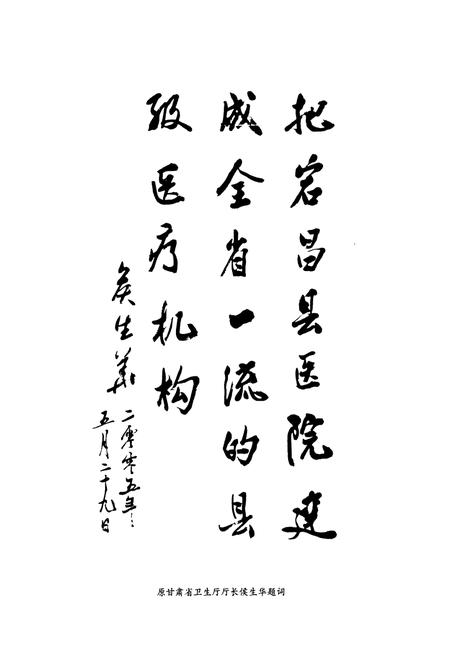 把宕昌县医院建
成全省一流的县
级医疗机构
侯生华
二零零五年
五月二十九日
原甘肃省卫生厅厅长侯生华题词